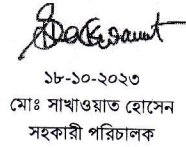 ১৮-১০-২০২৩
মোঃ সাখাওয়াত হোসেন
সহকারী পরিচালক